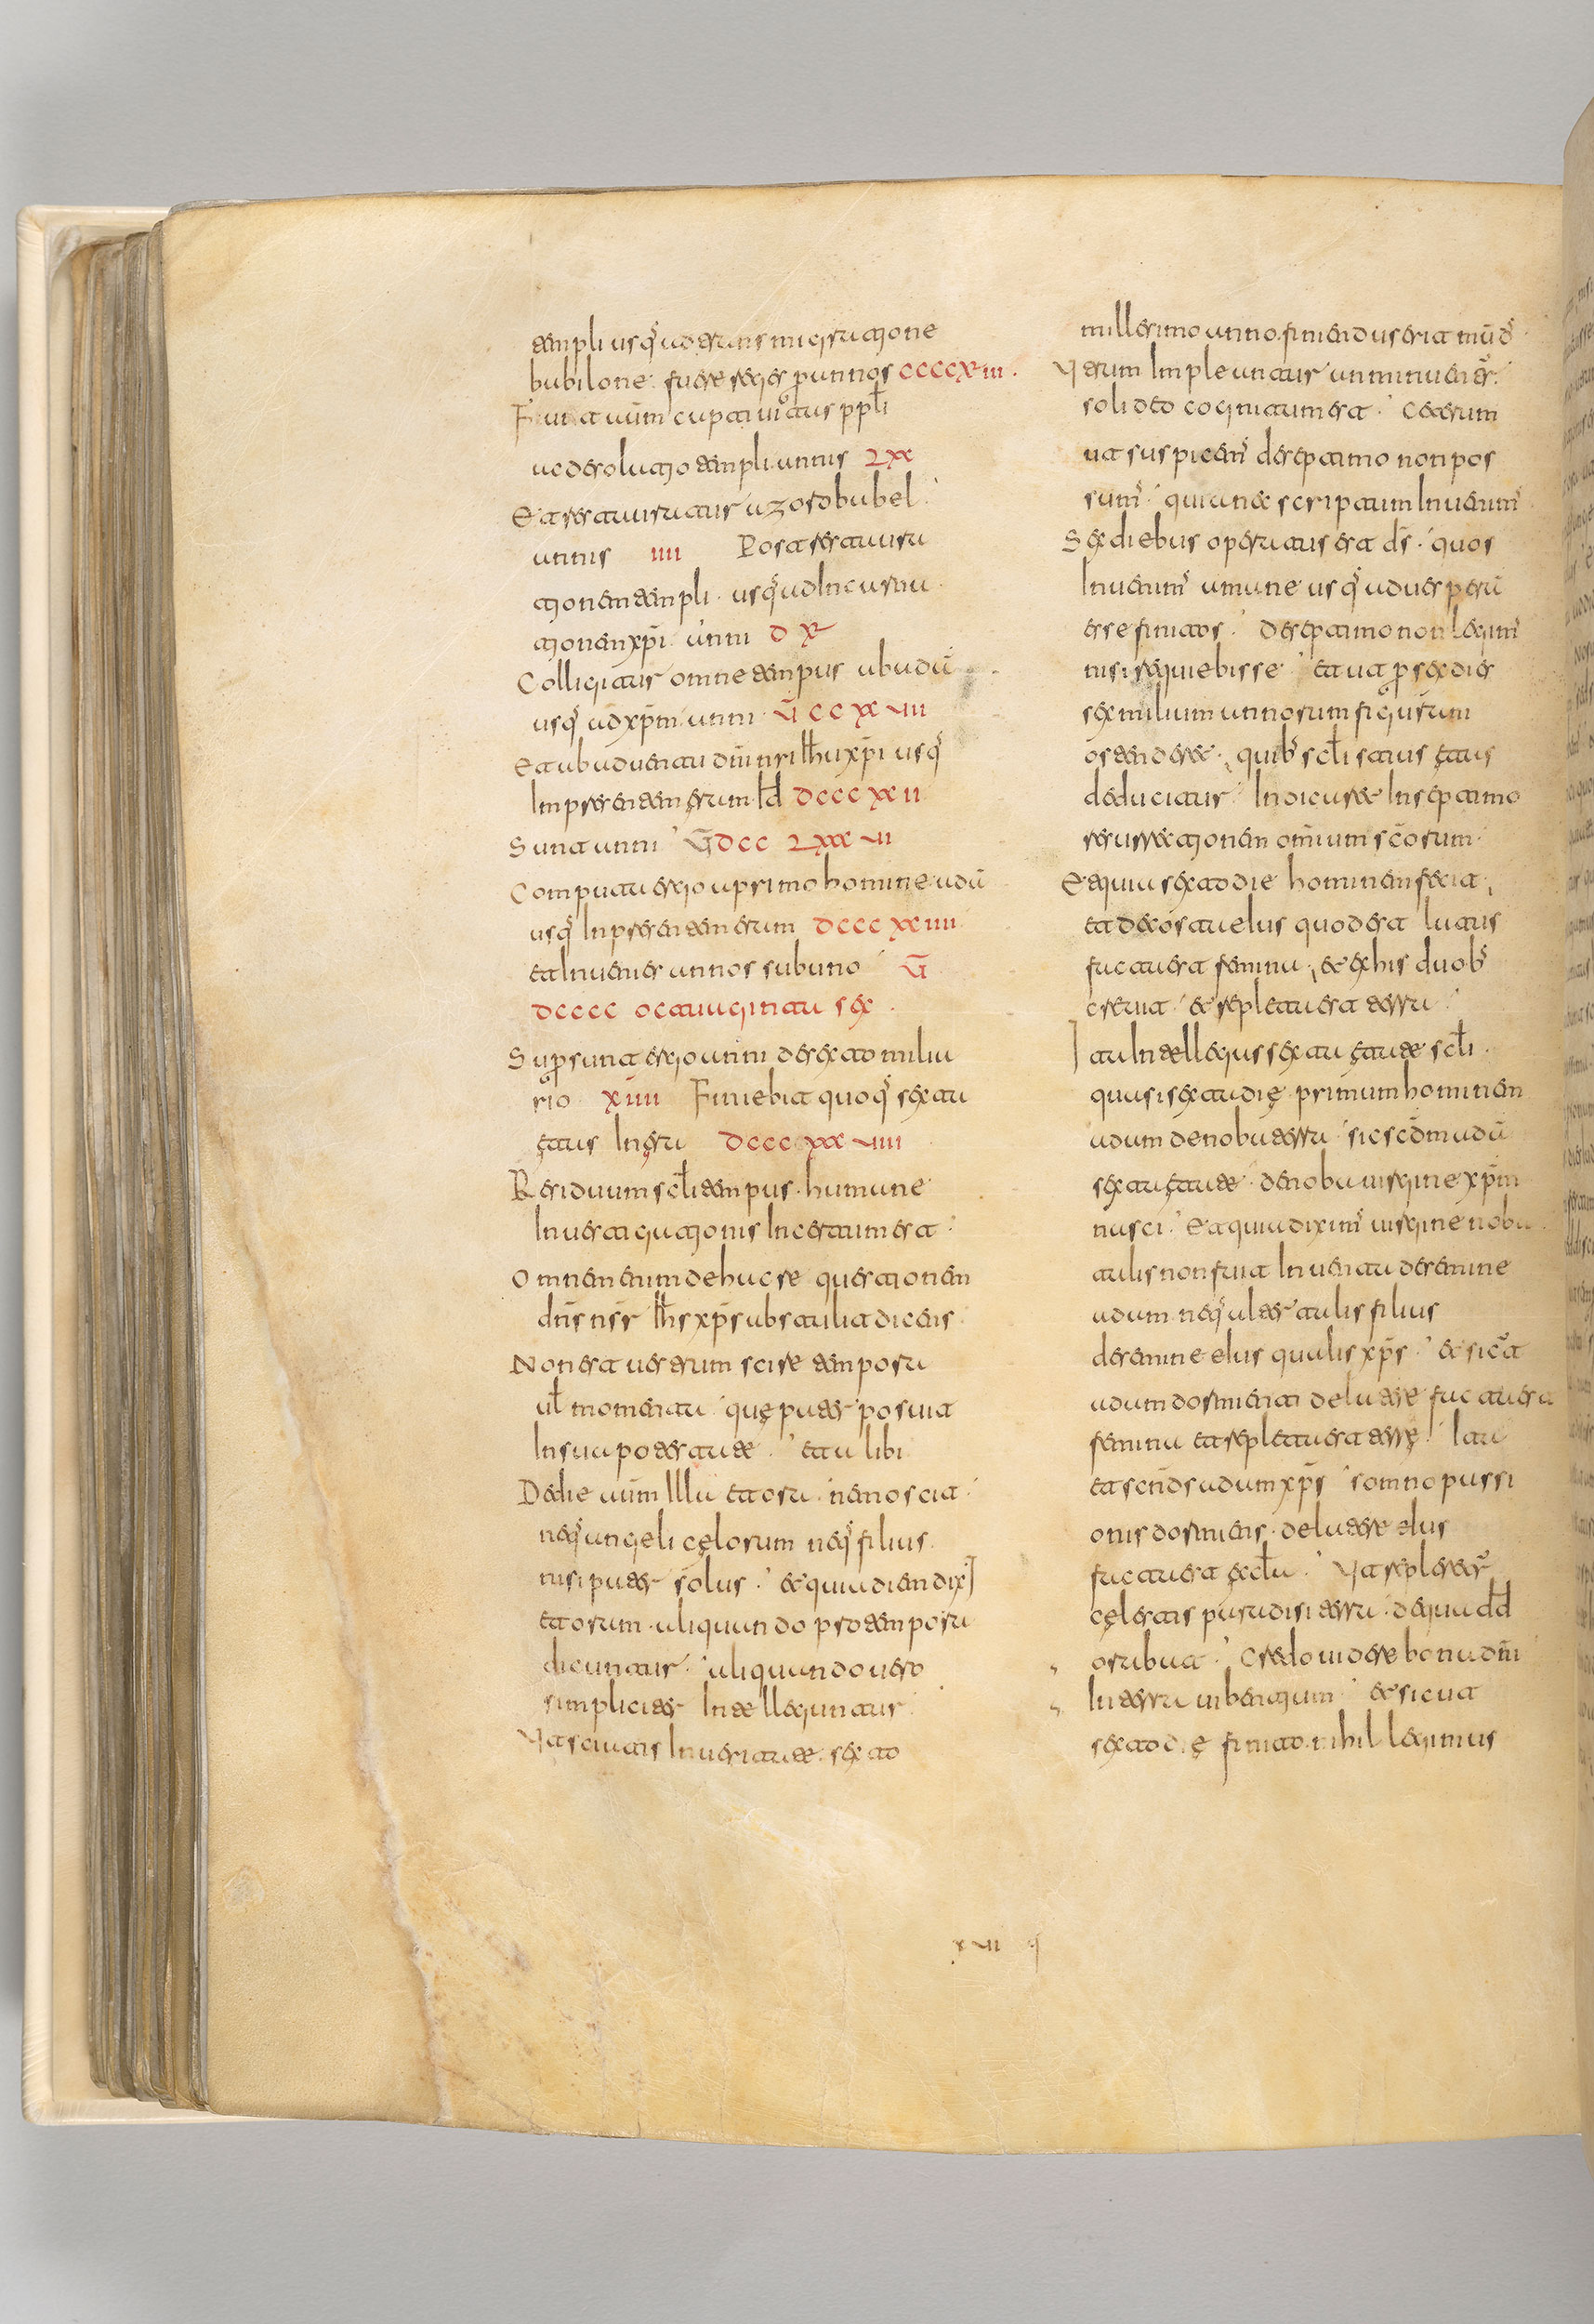 templi usq̄ ad transmigratione
babilone. fuere reges per annos ccccxiii.
Fuit aūm captiuitatis ppl̄i
ac desolatio templi annis Lxx
Et restauratur a zorobabel.
annis iiii Post restaura
tionem templi. usq̄ ad Incarna
tionem xp̄i anni dxv
Colligitur omne tempus ab adā
usq̄ ad xp̄m anni v̄ccxxviiii
Et ab aduentu dn̄i nr̄i Ih̄u xp̄i usq̄
In presentem eram id dcccxxii
Sunt anni v̄dcclxxxvi
Computata ergo a primo homine adā
usq̄ In presentem eram dcccxxiiii
et Inuenies annos sub uno v̄
dcccc octuaginta sex
Supersunt ergo anni de sexto milia
rio xiiii Finiebit quoq̄ sexta
etas In era dcccxxxviiii
Residuum scl̄i tempus humane
Inuestigationis Incertum est.
Omnem enim de hac re questionem
dn̄s nsr Ih̄s xp̄s abstulit dicens.
Non est uestrum scire tempora
ul̄ momenta que pater posuit
In sua potestate. et alibi
De die aūm Illa et ora. nemo scit.
neq̄ angeli celorum neq̄ filius.
nisi pater solus. et quia diem dixi
et oram. aliquando pro tempora
dicuntur. aliquando uero
simpliciter Intelleguntur
Vt sciatis In ueritate. sexto
millesimo anno. finiendus erit mūds
Vtrum Impleantur an minuentur.
soli deo cognitum est. Ceterum
ut suspicemur de septimo non pos
sumus. quia nec scriptum Inuenimus
Sex diebus operatus est ds̄. quos
Inuenimus a mane usq̄ ad uesperū
esse finitos. de septimo non legimus
nisi requiebisse et ut per sex dies
sex milium annorum figuram
ostendere. quibus scl̄i status etatis
deducitur. Indicaret In septimo
resurrectionem om̄ium sc̄orum.
Et quia sexto die hominem fecit,
et de costa eius quod est latus
facta est femina, et ex his duobus
creuit et repleta est terra
Ita Intellegitur sexta etate scl̄i.
quasi sexta die primum hominem
adam de noba terra sic scdm̄ adā
sexta etate. de noba uirgine xp̄m
nasci. Et quia diximus uirgine noba.
talis non fuit Inuenta de semine
adam. neq̄ alter talis filius
de semine eius qualis xp̄s. et sicut
adam dormienti de latere facta est
femina et repleta est terre. Ita
et scn̄ds adam xp̄s somno passi
onis dormiens. de latere eius
facta est eccl̄a. Vt repleretur
celestis paradisi terra. de qua dd̄
oribit. Credo uidere bona dn̄i
In terra uibentium et sicut
sexto die finito. nihil legimus
xvii q